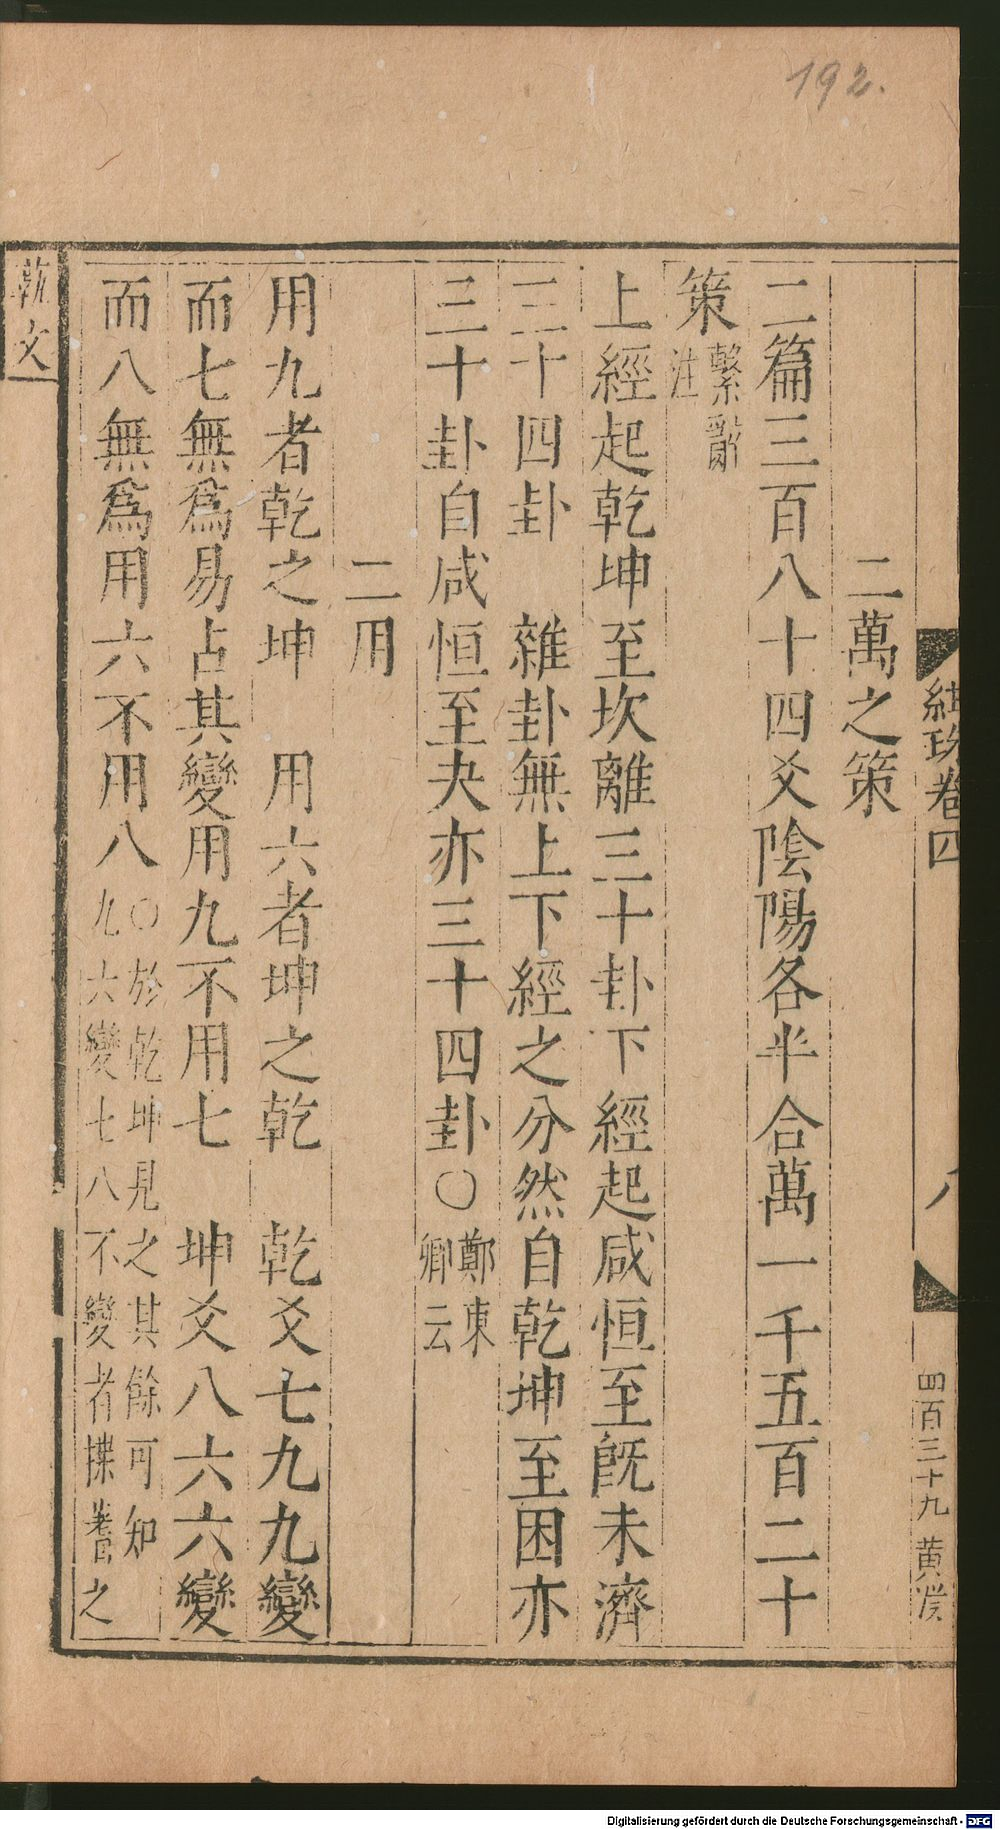 192.
二萬之策
二篇三百八十四爻陰陽各半合萬一千五百二十
策繫辭注
上經起乾坤至坎離三十卦下經起咸恒至旣未濟
三十四卦 雜卦無上下經之分然自乾坤至困亦
三十卦自咸恒至夬亦三十四卦○鄭東卿云
二用
用九者乾之坤 用六者坤之乾 乾爻七九九變
而七無爲易占其變用九不用七 坤爻八六六變
而八無爲用六不用八○於乾坤見之其餘可知
九六變七八不變者揲蓍之
卷四
八
四百三十九 黄
文
Digitalisierung gefördert durch die Deutsche Forschungsgemeinschaft - DFG